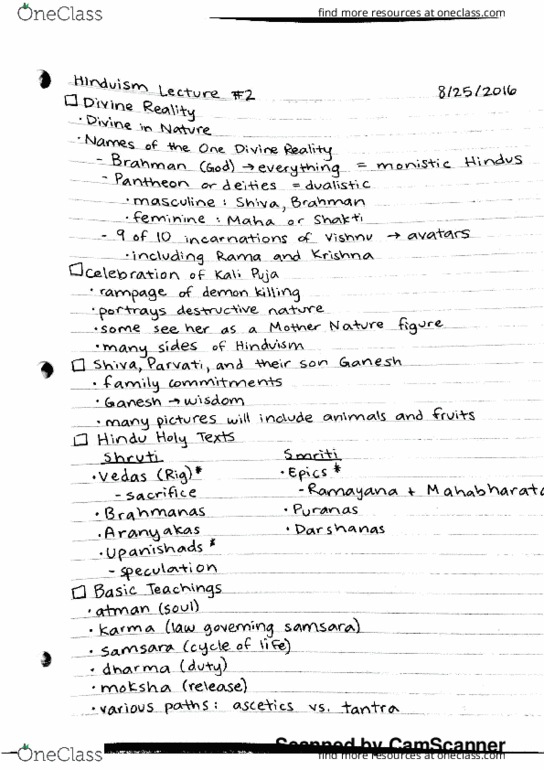 OneClass
find more resources at oneclass.com
Hinduism Lecture #2 8/25/2016
Divine Reality
• Divine in Nature
• Names of the One Divine Reality
- Brahman (God) → everything = monistic Hindus
- Pantheon or deities = dualistic
• masculine: Shiva, Brahman
• feminine: Maha or Shakti
- 9 of 10 incarnations of Vishnu → avatars
• including Rama and Krishna
Celebration of Kali Puja
• rampage of demon killing
• portrays destructive nature
• some see her as a Mother Nature figure
• many sides of Hinduism
Shiva, Parvati, and their son Ganesh
• family commitments
• Ganesh → wisdom
• many pictures will include animals and fruits
Hindu Holy Texts
Shruti Smriti
• Vedas (Rig)* • Epics*
- sacrifice - Ramayana + Mahabharata
• Brahmanas • Puranas
• Aranyakas • Darshanas
• Upanishads*
- speculation
Basic Teachings
• atman (soul)
• karma (law governing samsara)
• samsara (cycle of life)
• dharma (duty)
• moksha (release)
• various paths: ascetics vs. tantra
Scanned by CamScanner
OneClass
find more resources at oneclass.com